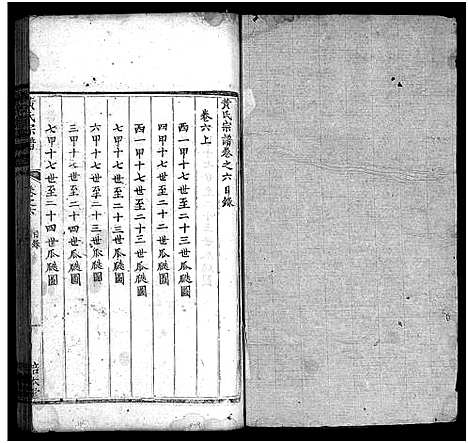 黃氏宗譜卷之六目錄
卷六上
西一甲十七世至二十三世瓜瓞圖
四甲十七世至二十三世瓜瓞圖
西一甲十七世至二十三世瓜瓞圖
七甲十七世至二十三世瓜瓞圖
六甲十七世至二十三世瓜瓞圖
三甲十七世至二十四世瓜瓞圖
七甲十七世至二十四世瓜瓞圖
黃氏宗譜
卷之六
目錄